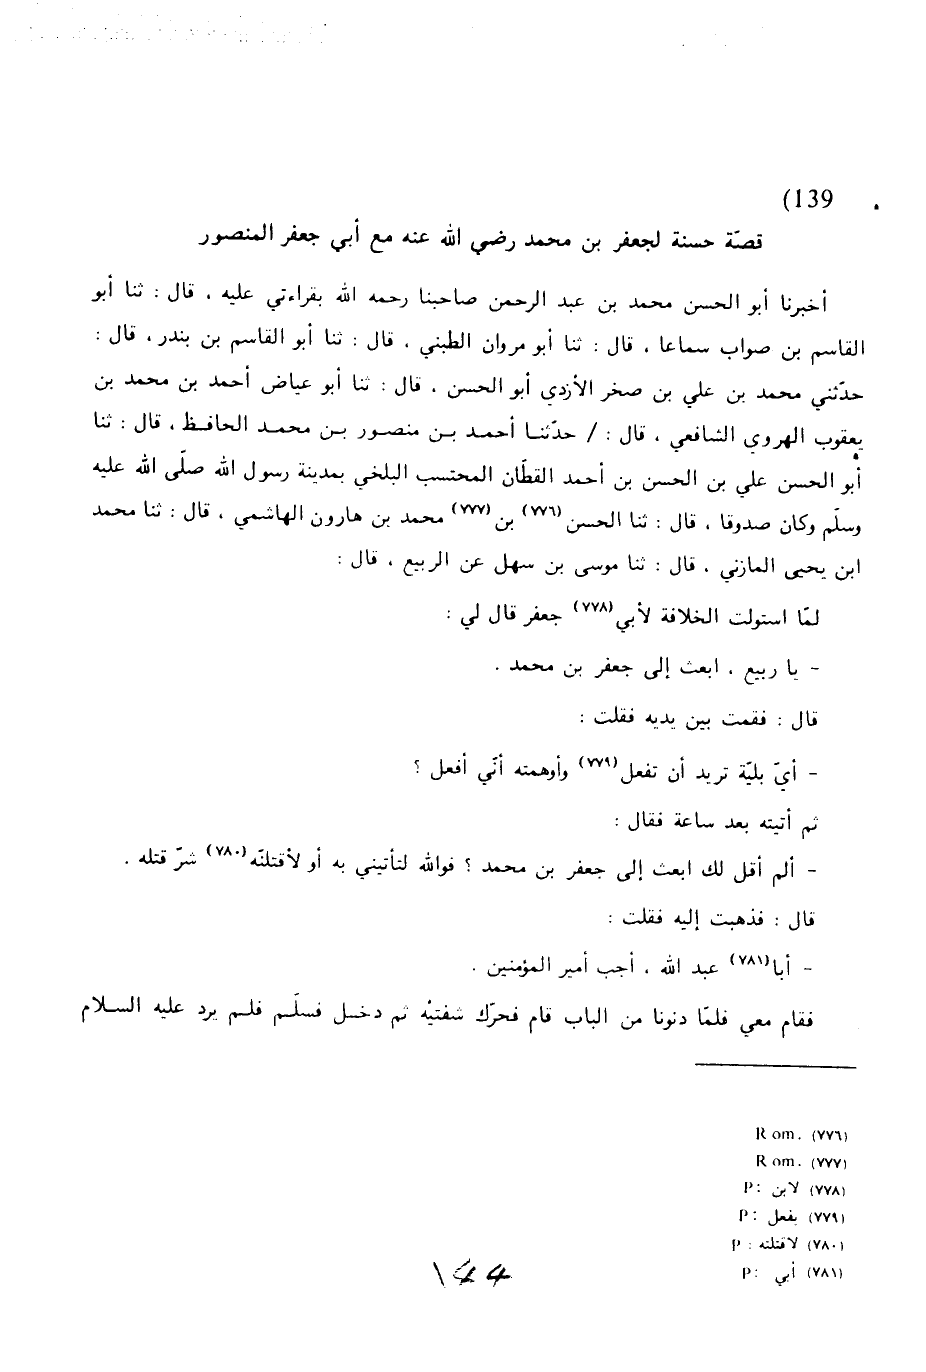 139)
قصّة حسنة لجعفر بن محمد رضي الله عنه مع أبي جعفر المنصور
أخبرنا أبو الحسن محمد بن عبد الرحمن صاحبنا رحمه الله بقراءتي عليه ، قال : ثنا أبو
القاسم بن صواب سماعا ، قال : ثنا أبو مروان الطبني ، قال : ثنا أبو القاسم بن بندر ، قال :
حدّثني محمد بن علي بن صخر الأزدي أبو الحسن ، قال : ثنا أبو عياض أحمد بن محمد بن
يعقوب الهروي الشافعي ، قال : / حدّثنا أحمد بن منصور بن محمد الحافظ ، قال : ثنا
أبو الحسن علي بن الحسن بن أحمد القطّان المحتسب البلخي بمدينة رسول الله صلّى الله عليه
وسلّم وكان صدوقا ، قال : ثنا الحسن(٧٧٦) بن(٧٧٧) محمد بن هارون الهاشمي ، قال : ثنا محمد
ابن يحيى المازني ، قال : ثنا موسى بن سهل عن الربيع ، قال :
لمّا استولت الخلافة لأبي(٧٧٨) جعفر قال لي :
- يا ربيع ، ابعث إلى جعفر بن محمد .
قال : فقمت بين يديه فقلت :
- أيّ بليّة تريد أن تفعل(٧٧٩) وأوهمته أنّي أفعل ؟
ثم أتيته بعد ساعة فقال :
- ألم أقل لك ابعث إلى جعفر بن محمد ؟ فوالله لتأتيني به أو لأقتلنّه(٧٨٠) شرّ قتله .
قال : فذهبت إليه فقلت :
- أبا(٧٨١) عبد الله ، أجب أمير المؤمنين .
فقام معي فلمّا دنونا من الباب قام فحرّك شفتيْه ثم دخل فسلّم فلم يرد عليه السلام
(٧٧٦) R om.
(٧٧٧) R om.
(٧٧٨) لابن :P
(٧٧٩) يفعل :P
(٧٨٠) لاقتلته :P
(٧٨١) أبي :P